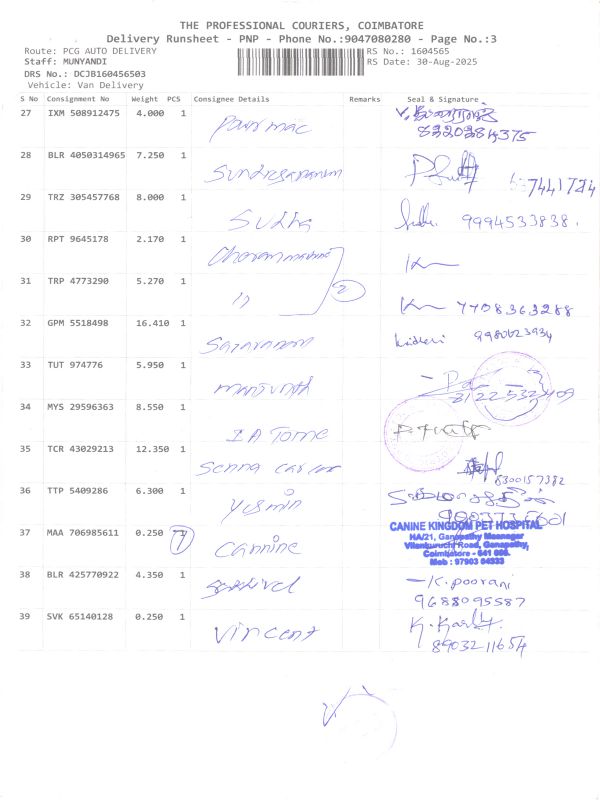 THE PROFESSIONAL COURIERS, COIMBATORE
Delivery Runsheet - PNP - Phone No.:9047080280 - Page No.:3
Route: PCG AUTO DELIVERY
RS No.: 1604565
Staff: MUNYANDI
RS Date: 30-Aug-2025
DRS No.: DCJB160456503
Vehicle: Van Delivery
S No Consignment No Weight PCS Consignee Details Remarks Seal & Signature
27 IXM 508912475 4.000 1
8220384375
28 BLR 4050314965 7.250 1
29 TRZ 305457768 8.000 1 Sudha 9994533838.
30 RPT 9645178 2.170 1
2
31 TRP 4773290 5.270 1 11 7708363288
32 GPM 5518498 16.410 1 Saravanam
33 TUT 974776 5.950 1 manjunath
34 MYS 29596363 8.550 1
35 TCR 43029213 12.350 1
8300157382
36 TTP 5409286 6.300 1 Yesmin
37 MAA 706985611 0.250 7 Cannine
CANINE KINGDOM PET HOSPITAL
HA/21, Ganapathy Maanagar
Vilankuruchi Road, Ganapathy,
Coimbatore - 641 006.
Mob : 97903 04333
38 BLR 425770922 4.350 1 K. poorani
9688095587
39 SVK 65140128 0.250 1 Vincent
8903211654